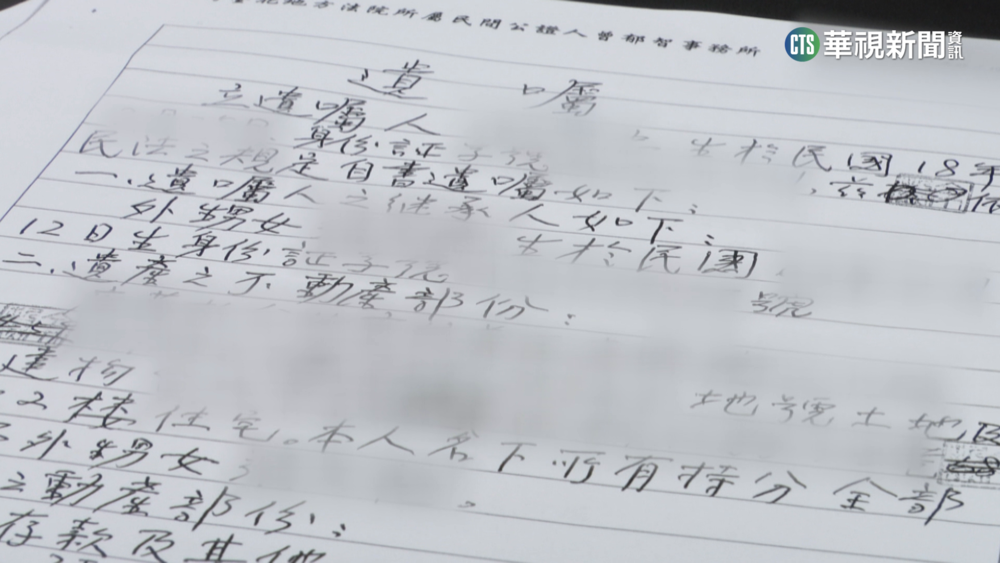 CTS 華視新聞 資訊
北地方法院所屬民間公證人曾郁智事務所
遺 囑
立遺囑人 生於民國18年
身份証字號 ,茲 依
民法之規定自書遺囑如下:
一、遺囑人之继承人如下:
外甥女 生於民國
12日生身份証字號 號
二、遺產之不動產部份:
建物 地號土地
2樓住宅。本人名下所有持分全部
外甥女
之動產部份:
存款及其他